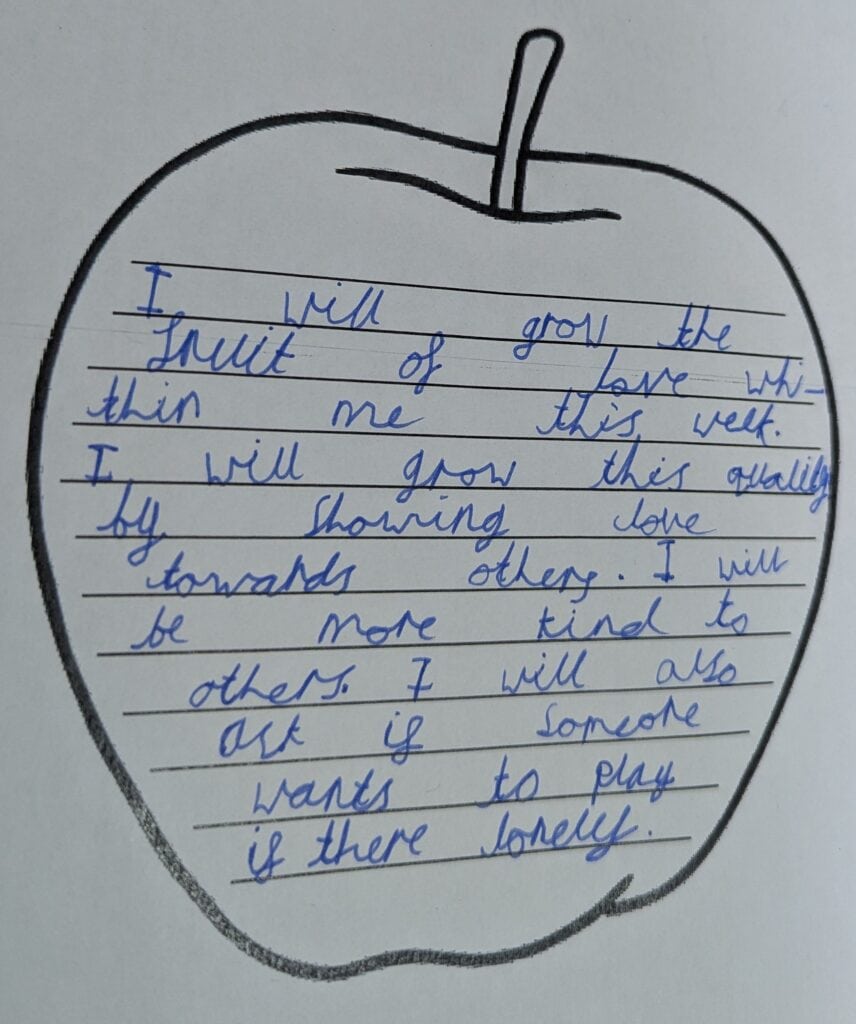 I will grow the
fruit of love whi-
thin me this week.
I will grow this quality
by showing love
towards others. I will
be more kind to
others. I will also
ask if someone
wants to play
if there lonely.